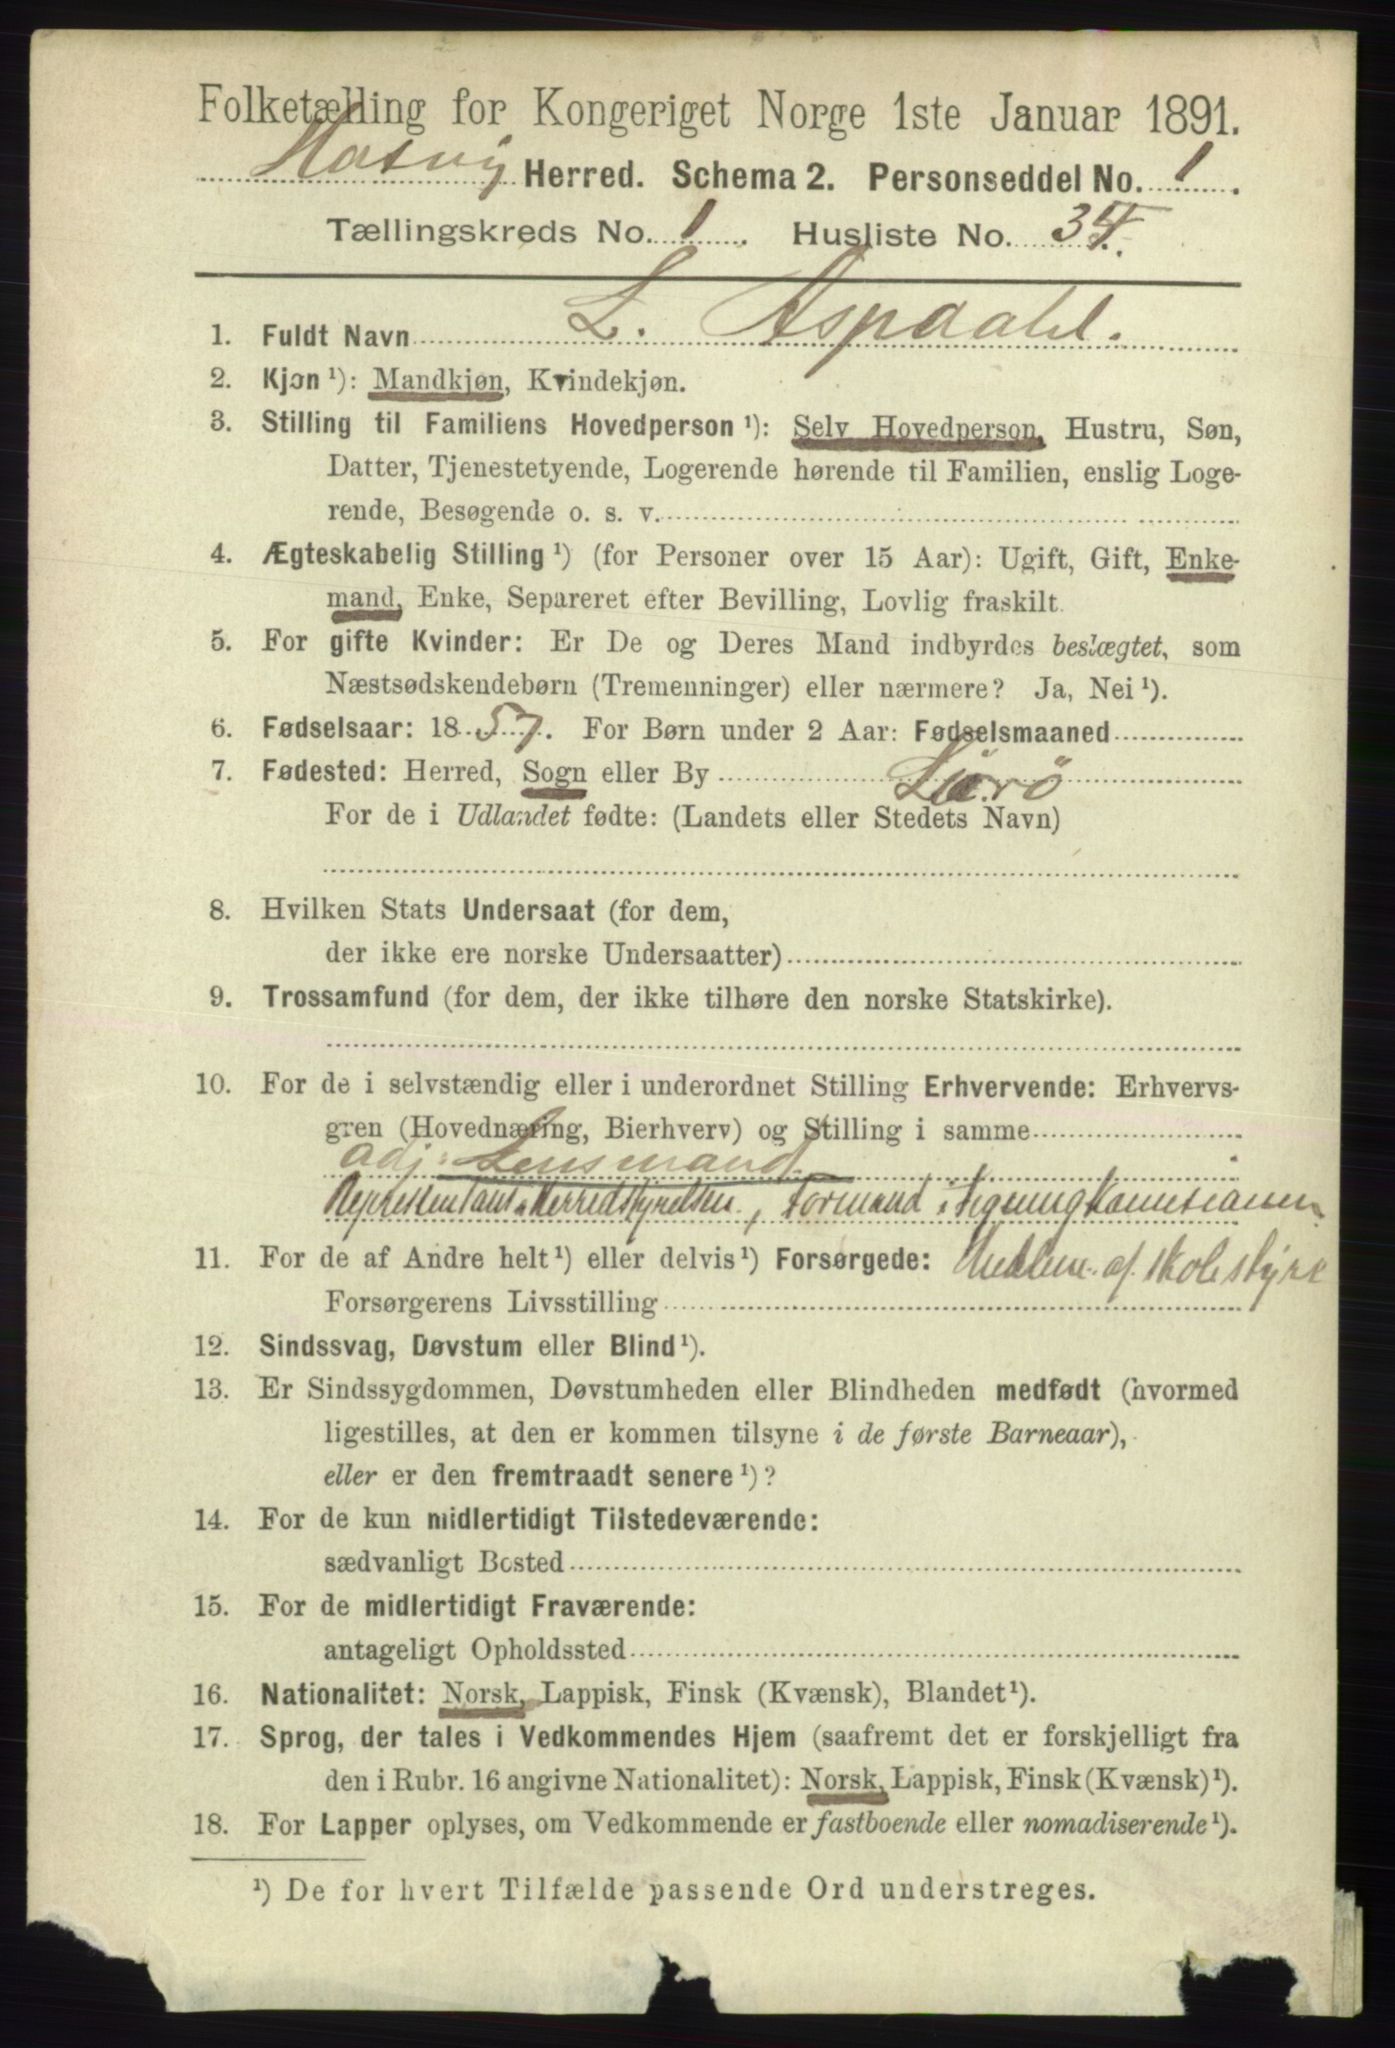 Folketælling for Kongeriget Norge 1ste Januar 1891.
Hasvig Herred. Schema 2. Personseddel No. 1.
Tællingskreds No. 1. Husliste No. 34.
1. Fuldt Navn L. Aspdahl.
2. Kjøn ¹): Mandkjøn, Kvindekjøn.
3. Stilling til Familiens Hovedperson ¹): Selv Hovedperson, Hustru, Søn,
Datter, Tjenestetyende, Logerende hørende til Familien, enslig Loge-
rende, Besøgende o. s. v.
4. Ægteskabelig Stilling ¹) (for Personer over 15 Aar): Ugift, Gift, Enke-
mand, Enke, Separeret efter Bevilling, Lovlig fraskilt.
5. For gifte Kvinder: Er De og Deres Mand indbyrdes beslægtet, som
Næstsødskendebørn (Tremenninger) eller nærmere? Ja, Nei ¹).
6. Fødselsaar: 1857. For Børn under 2 Aar: Fødselsmaaned
7. Fødested: Herred, Sogn eller By Lurö
For de i Udlandet fødte: (Landets eller Stedets Navn)
8. Hvilken Stats Undersaat (for dem,
der ikke ere norske Undersaatter)
9. Trossamfund (for dem, der ikke tilhøre den norske Statskirke).
10. For de i selvstændig eller i underordnet Stilling Erhvervende: Erhvervs-
gren (Hovednæring, Bierhverv) og Stilling i samme
adj: Lensmand
Repræsentant i Herredstyrelsen, Formand i Ligningskomisionen
11. For de af Andre helt ¹) eller delvis ¹) Forsørgede: Medlem af Skolestyre
Forsørgerens Livsstilling
12. Sindssvag, Døvstum eller Blind ¹).
13. Er Sindssygdommen, Døvstumheden eller Blindheden medfødt (hvormed
ligestilles, at den er kommen tilsyne i de første Barneaar),
eller er den fremtraadt senere ¹)?
14. For de kun midlertidigt Tilstedeværende:
sædvanligt Bosted
15. For de midlertidigt Fraværende:
antageligt Opholdssted
16. Nationalitet: Norsk, Lappisk, Finsk (Kvænsk), Blandet ¹).
17. Sprog, der tales i Vedkommendes Hjem (saafremt det er forskjelligt fra
den i Rubr. 16 angivne Nationalitet): Norsk, Lappisk, Finsk (Kvænsk) ¹).
18. For Lapper oplyses, om Vedkommende er fastboende eller nomadiserende ¹).
¹) De for hvert Tilfælde passende Ord understreges.